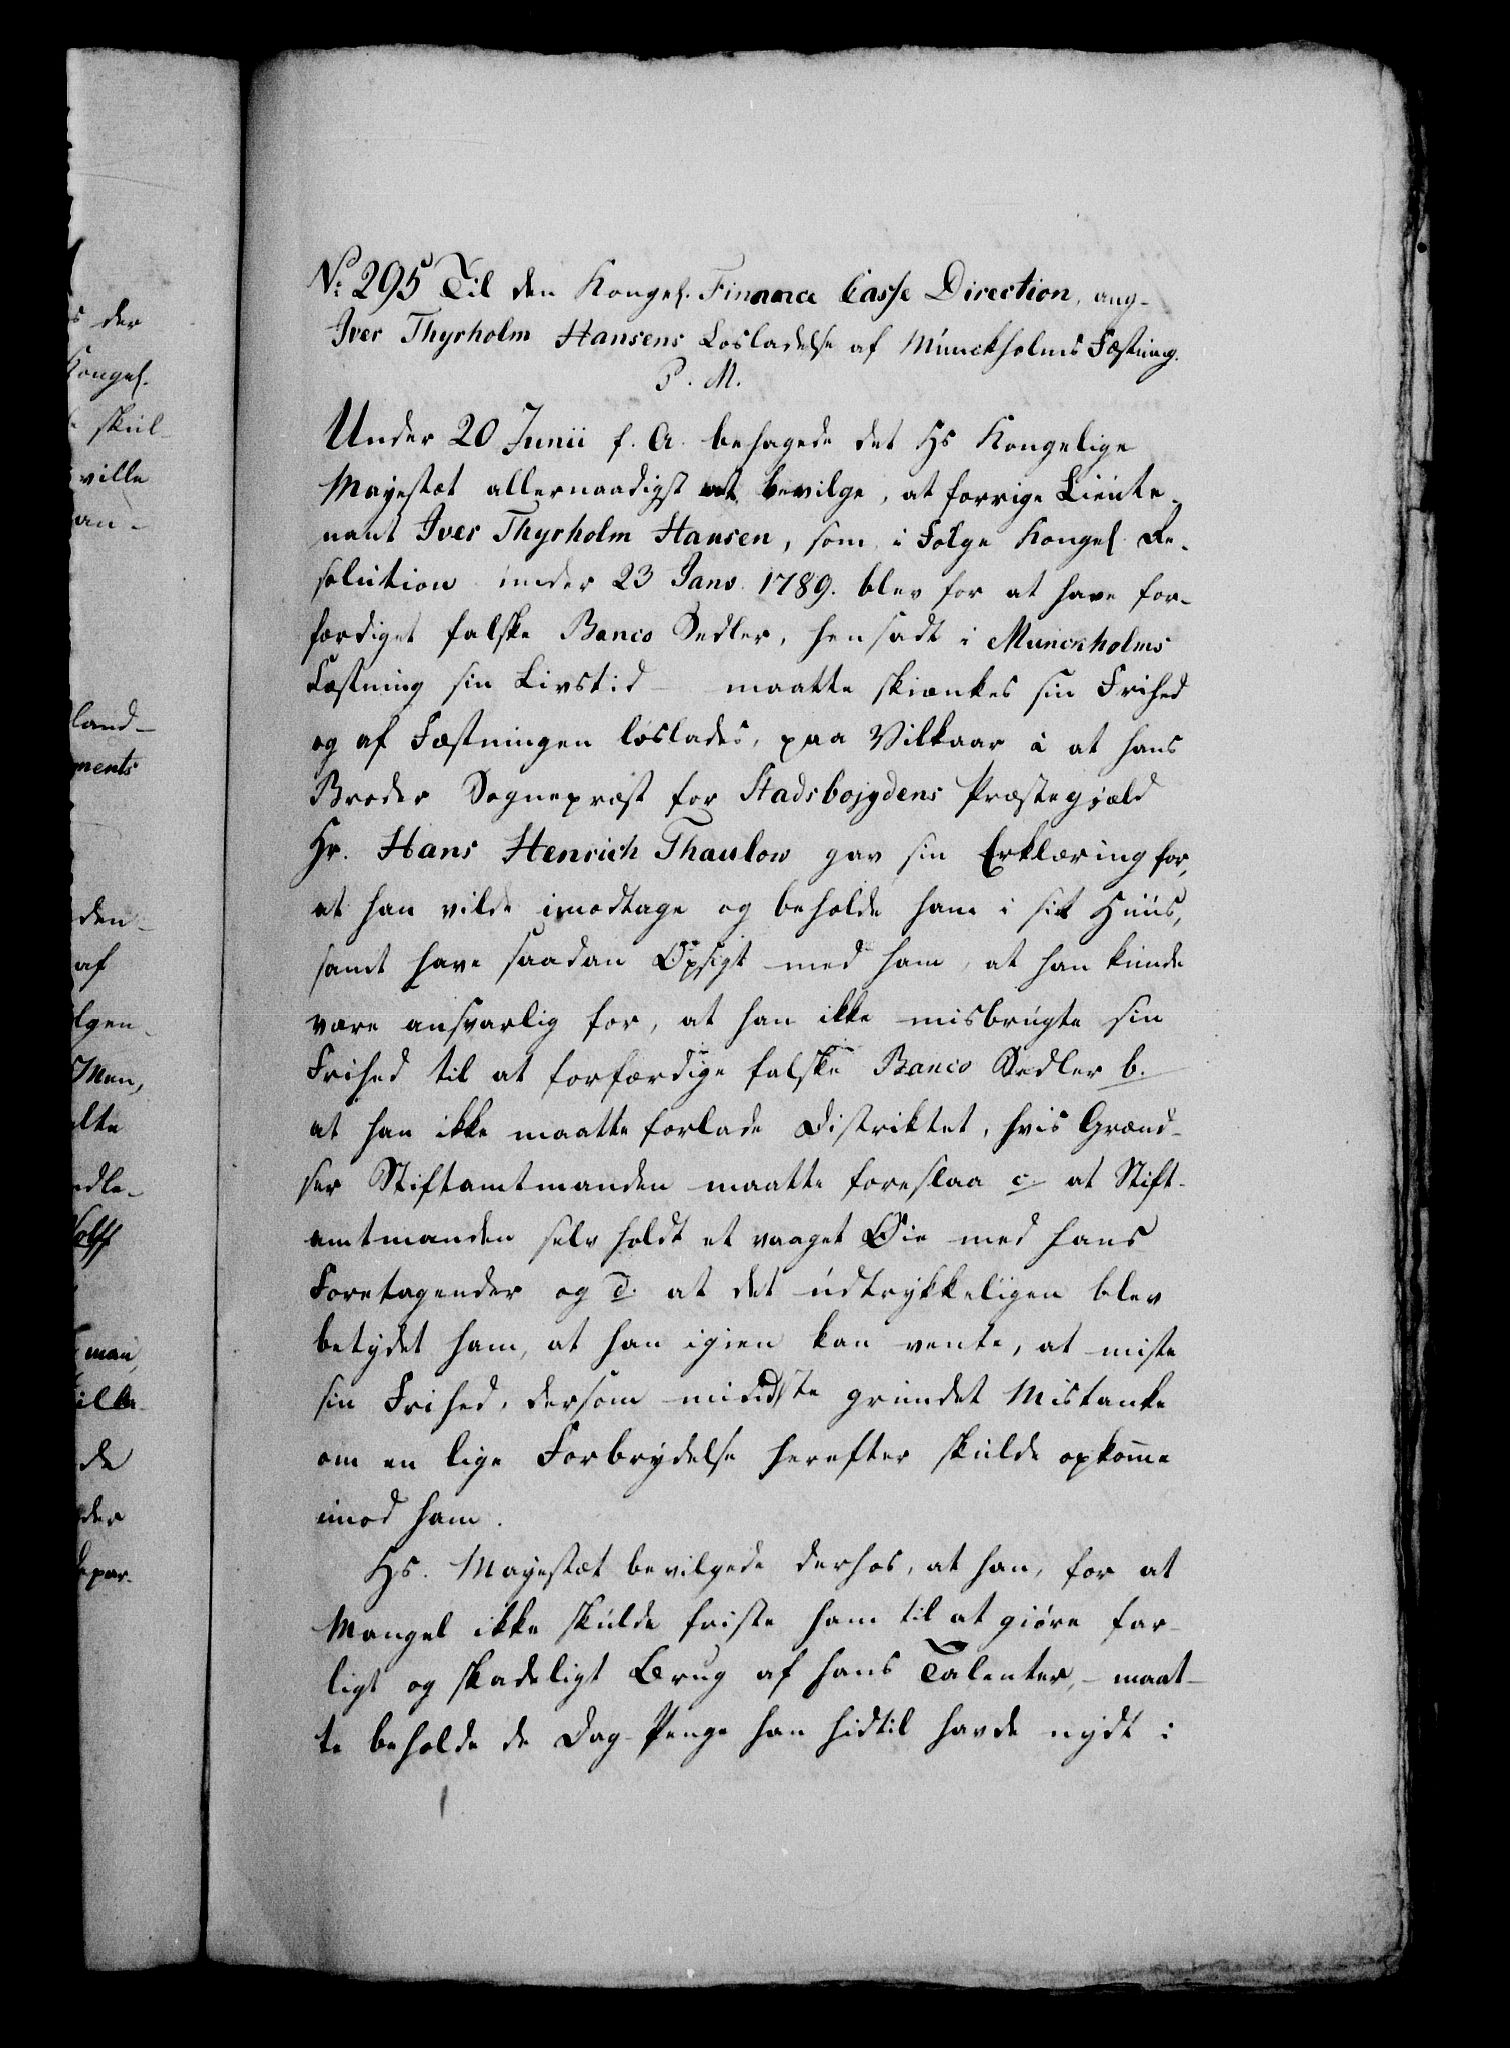 s der
Kongel.
skul-
ville
an-
land-
ments
den-
af
lgen-
Men,
elte
edle-
Wolff
man,
de
der
Depar-
No. 295 Til den Kongel. Finance Casse Direction, ang-
Iver Thyrholm Hansens Løsladelse af Munckholms Fæstning.
P. M.
Under 20 Junii f. A. behagede det Hs Kongelige
Mayestæt allernaadigst at bevilge, at forrige Lieute-
nant Iver Thyrholm Hansen, som i Følge Kongel. Re-
solution under 23 Janv. 1789. blev for at have for-
færdiget falske Banco Sedler, hensadt i Munckholms
Fæstning sin Livstid - maatte skiænkes sin Frihed
og af Fæstningen løslades, paa Vilkaar a at hans
Broder Sognepræst for Stadsbøjgdens Præstegiæld
Hr. Hans Henrich Thaulow gav sin Erklæring for,
at han vilde imodtage og beholde ham i sit Huus,
samt have saadan Opsigt med ham, at han kunde
være ansvarlig for, at han ikke misbrugte sin
Frihed til at forfærdige falske Banco Sedler b.
at han ikke maatte forlade Distriktet, hvis Grænd-
ser Stiftamtmanden maatte foreslaa c. at Stift-
amtmanden selv holdt et vaaget Øie med hans
Foretagender og d. at det udtrykkeligen blev
betydet ham, at han igien kan vente, at miste
sin Frihed, dersom mindste grundet Mistanke
om en lige Forbrydelse herefter skulde opkomme
imod ham.
Hs. Mayestæt bevilgede derhos, at han, for at
Mangel ikke skulde friste ham til at giøre far-
ligt og skadeligt Brug af hans Talenter, - maat-
te beholde de Dag-Penge han hidtil havde nydt i